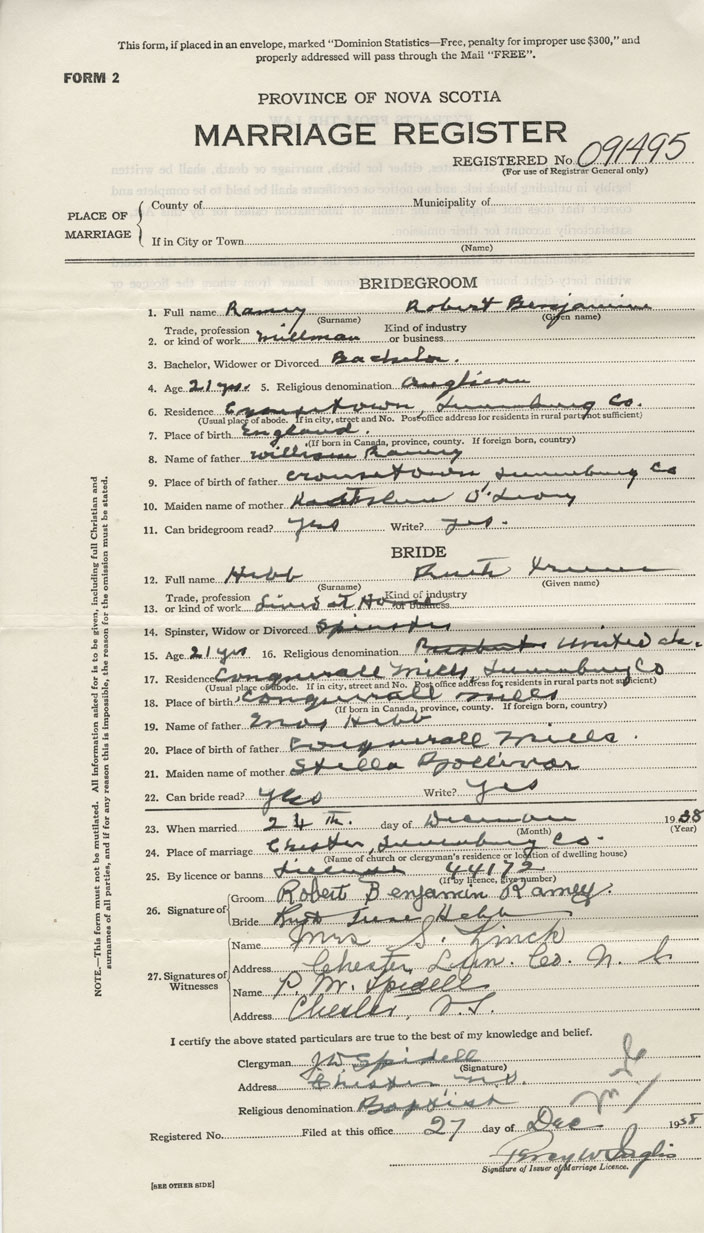 This form, if placed in an envelope, marked "Dominion Statistics—Free, penalty for improper use $300," and
properly addressed will pass through the Mail "FREE".
FORM 2
PROVINCE OF NOVA SCOTIA
MARRIAGE REGISTER
REGISTERED No. 091495
(For use of Registrar General only)
PLACE OF MARRIAGE
County of Municipality of
If in City or Town
(Name)
BRIDEGROOM
1. Full name Ramey Robert Benjamine
(Surname) (Given name)
Trade, profession Kind of industry
2. or kind of work Millman or business
3. Bachelor, Widower or Divorced Bachelor.
4. Age 21 yrs. 5. Religious denomination Anglican
6. Residence Crousetown, Lunenburg Co.
(Usual place of abode. If in city, street and No. Post office address for residents in rural parts not sufficient)
7. Place of birth England.
(If born in Canada, province, county. If foreign born, country)
8. Name of father William Ramey
9. Place of birth of father Crousetown Lunenburg Co
10. Maiden name of mother O'Leary
11. Can bridegroom read? Yes Write? Yes.
BRIDE
12. Full name Hebb Ruth Irene
(Surname) (Given name)
Trade, profession Kind of industry
13. or kind of work Lived at Home or business
14. Spinster, Widow or Divorced Spinster
15. Age 21 yrs 16. Religious denomination United Ch.
17. Residence Conquerall Mills, Lunenburg Co
(Usual place of abode. If in city, street and No. Post office address for residents in rural parts not sufficient)
18. Place of birth Conquerall Mills
(If born in Canada, province, county. If foreign born, country)
19. Name of father Enos Hebb
20. Place of birth of father Conquerall Mills.
21. Maiden name of mother Stella Bollivar
22. Can bride read? Yes Write? Yes
23. When married 24 th. day of December 1938
(Month) (Year)
24. Place of marriage Chester, Lunenburg Co.
(Name of church or clergyman's residence or location of dwelling house)
25. By licence or banns License 44172
(If by licence, give number)
26. Signature of
Groom Robert Benjamin Ramey.
Bride Ruth Irene Hebb
27. Signatures of Witnesses
Name Mrs S. Zinck
Address Chester, Lun. Co. N. S.
Name P. M. Spidell
Address Chester, N.S.
I certify the above stated particulars are true to the best of my knowledge and belief.
Clergyman J W Spidell
(Signature)
Address Chester N.S.
Religious denomination Baptist
Registered No. Filed at this office 27 day of Dec 1938
Percy W Inglis
Signature of Issuer of Marriage Licence.
[SEE OTHER SIDE]
NOTE.—This form must not be mutilated. All information asked for is to be given, including full Christian and
surnames of all parties, and if for any reason this is impossible, the reason for the omission must be stated.